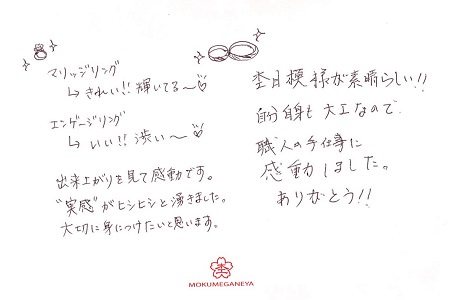 マリッジリング
↳ きれい!! 輝いてる〜♡
エンゲージリング
↳ いい!! 渋い〜♡
出来上がりを見て感動です。
"実感"がヒシヒシと湧きました。
大切に身につけたいと思います。
杢目模様が素晴らしい!!
自分自身も大工なので
職人の手仕事に
感動しました。
ありがとう!!
MOKUMEGANEYA